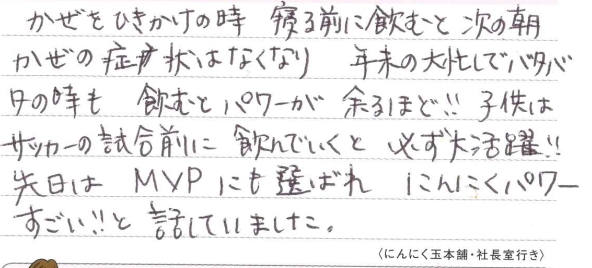 かぜをひきかけの時 寝る前に飲むと 次の朝
かぜの症状はなくなり 年末の大忙しでバタバ
タの時も 飲むとパワーが 余るほど!! 子供は
サッカーの試合前に 飲んでいくと 必ず大活躍!!
先日は MVPにも選ばれ にんにくパワー
すごい!!と 話していました。
〈にんにく玉本舗・社長室行き〉